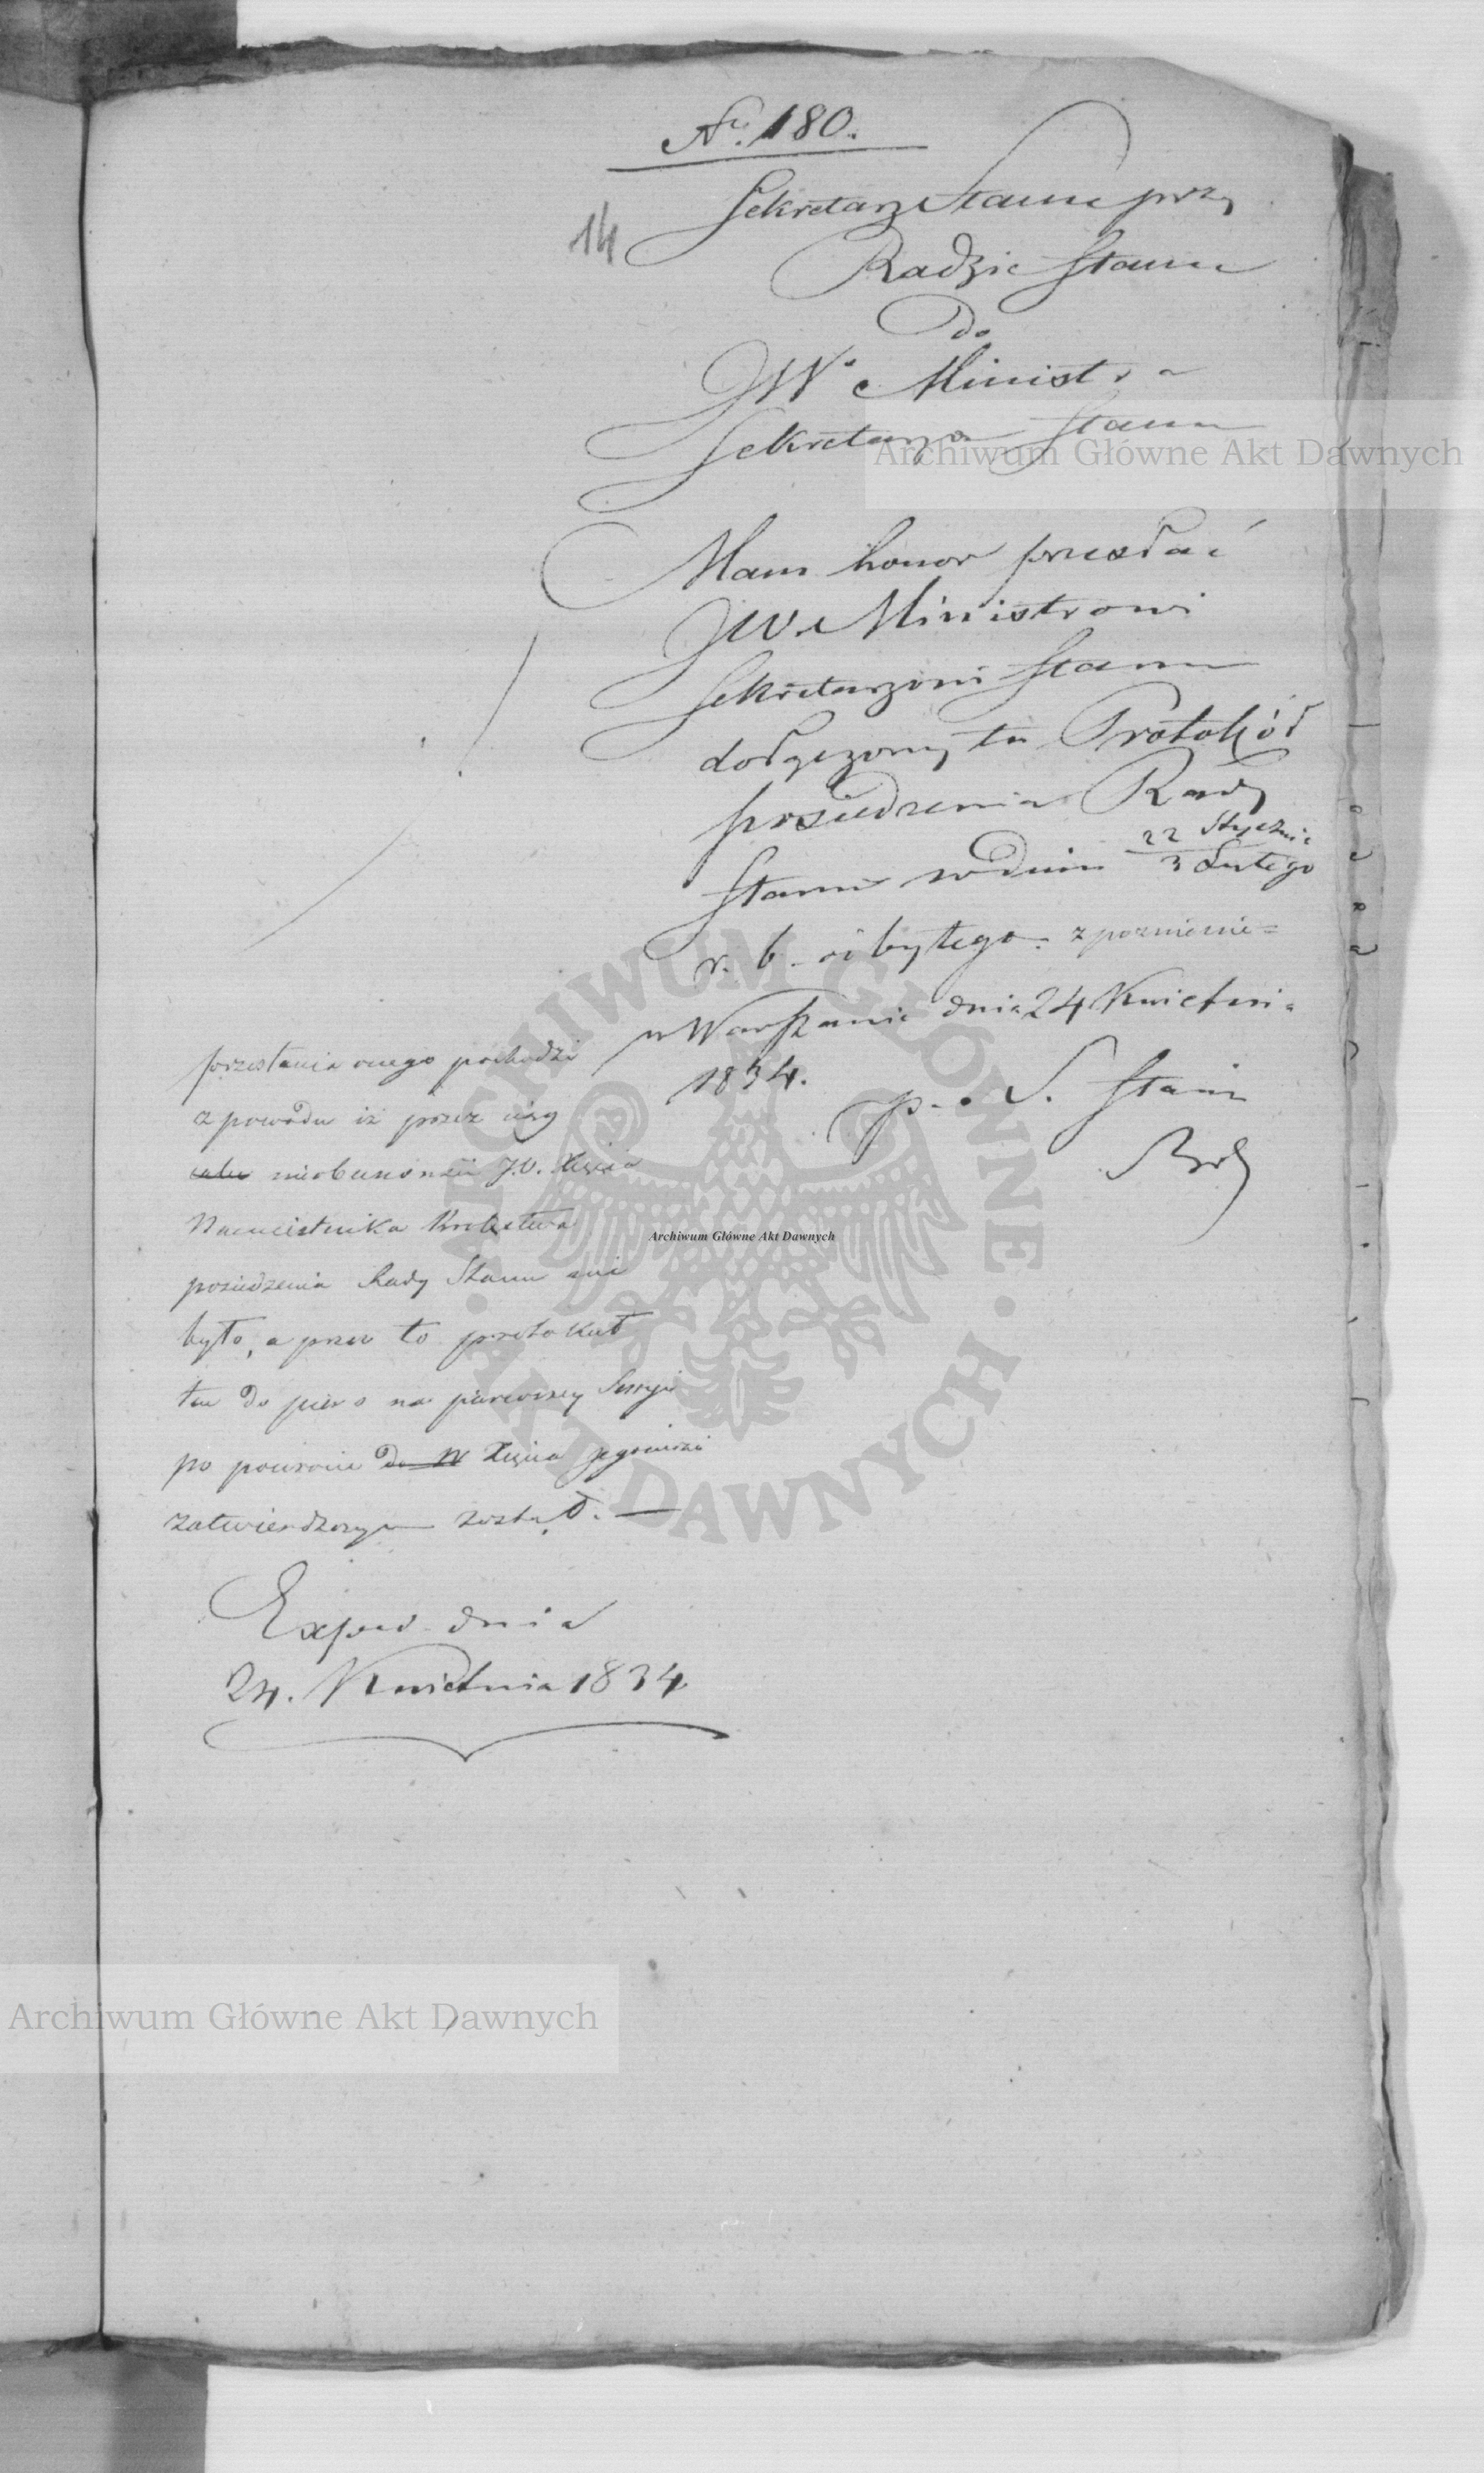 Nr. 180.
14
Sekretarz Stanu przy
Radzie Stanu
do
JW. Ministra
Sekretarza Stanu
Mam honor przesłać
JW. Ministrowi
Sekretarzowi Stanu
dołączony tu Protokół
posiedzenia Rady
Stanu w dniu 22 Stycznia / 3 Lutego
r. b. odbytego. z poznienie=
w Warszawie dnia 24 Kwietnia
1834.
p. o. S. Stanu
przesłania onego pochodzi
z powodu iż przez ciąg
nieobecności J.O. Xięcia
Namiestnika Królestwa
posiedzenia Rady Stanu nie
było, a przez to protokuł
ten do piero na pierwszey Sessyi
po powrocie do W Xięcia Jegomości
zatwierdzonym został. —
Exped. dnia
24. Kwietnia 1834
Archiwum Główne Akt Dawnych
ARCHIWUM GŁÓWNE AKT DAWNYCH
Archiwum Główne Akt Dawnych
Archiwum Główne Akt Dawnych